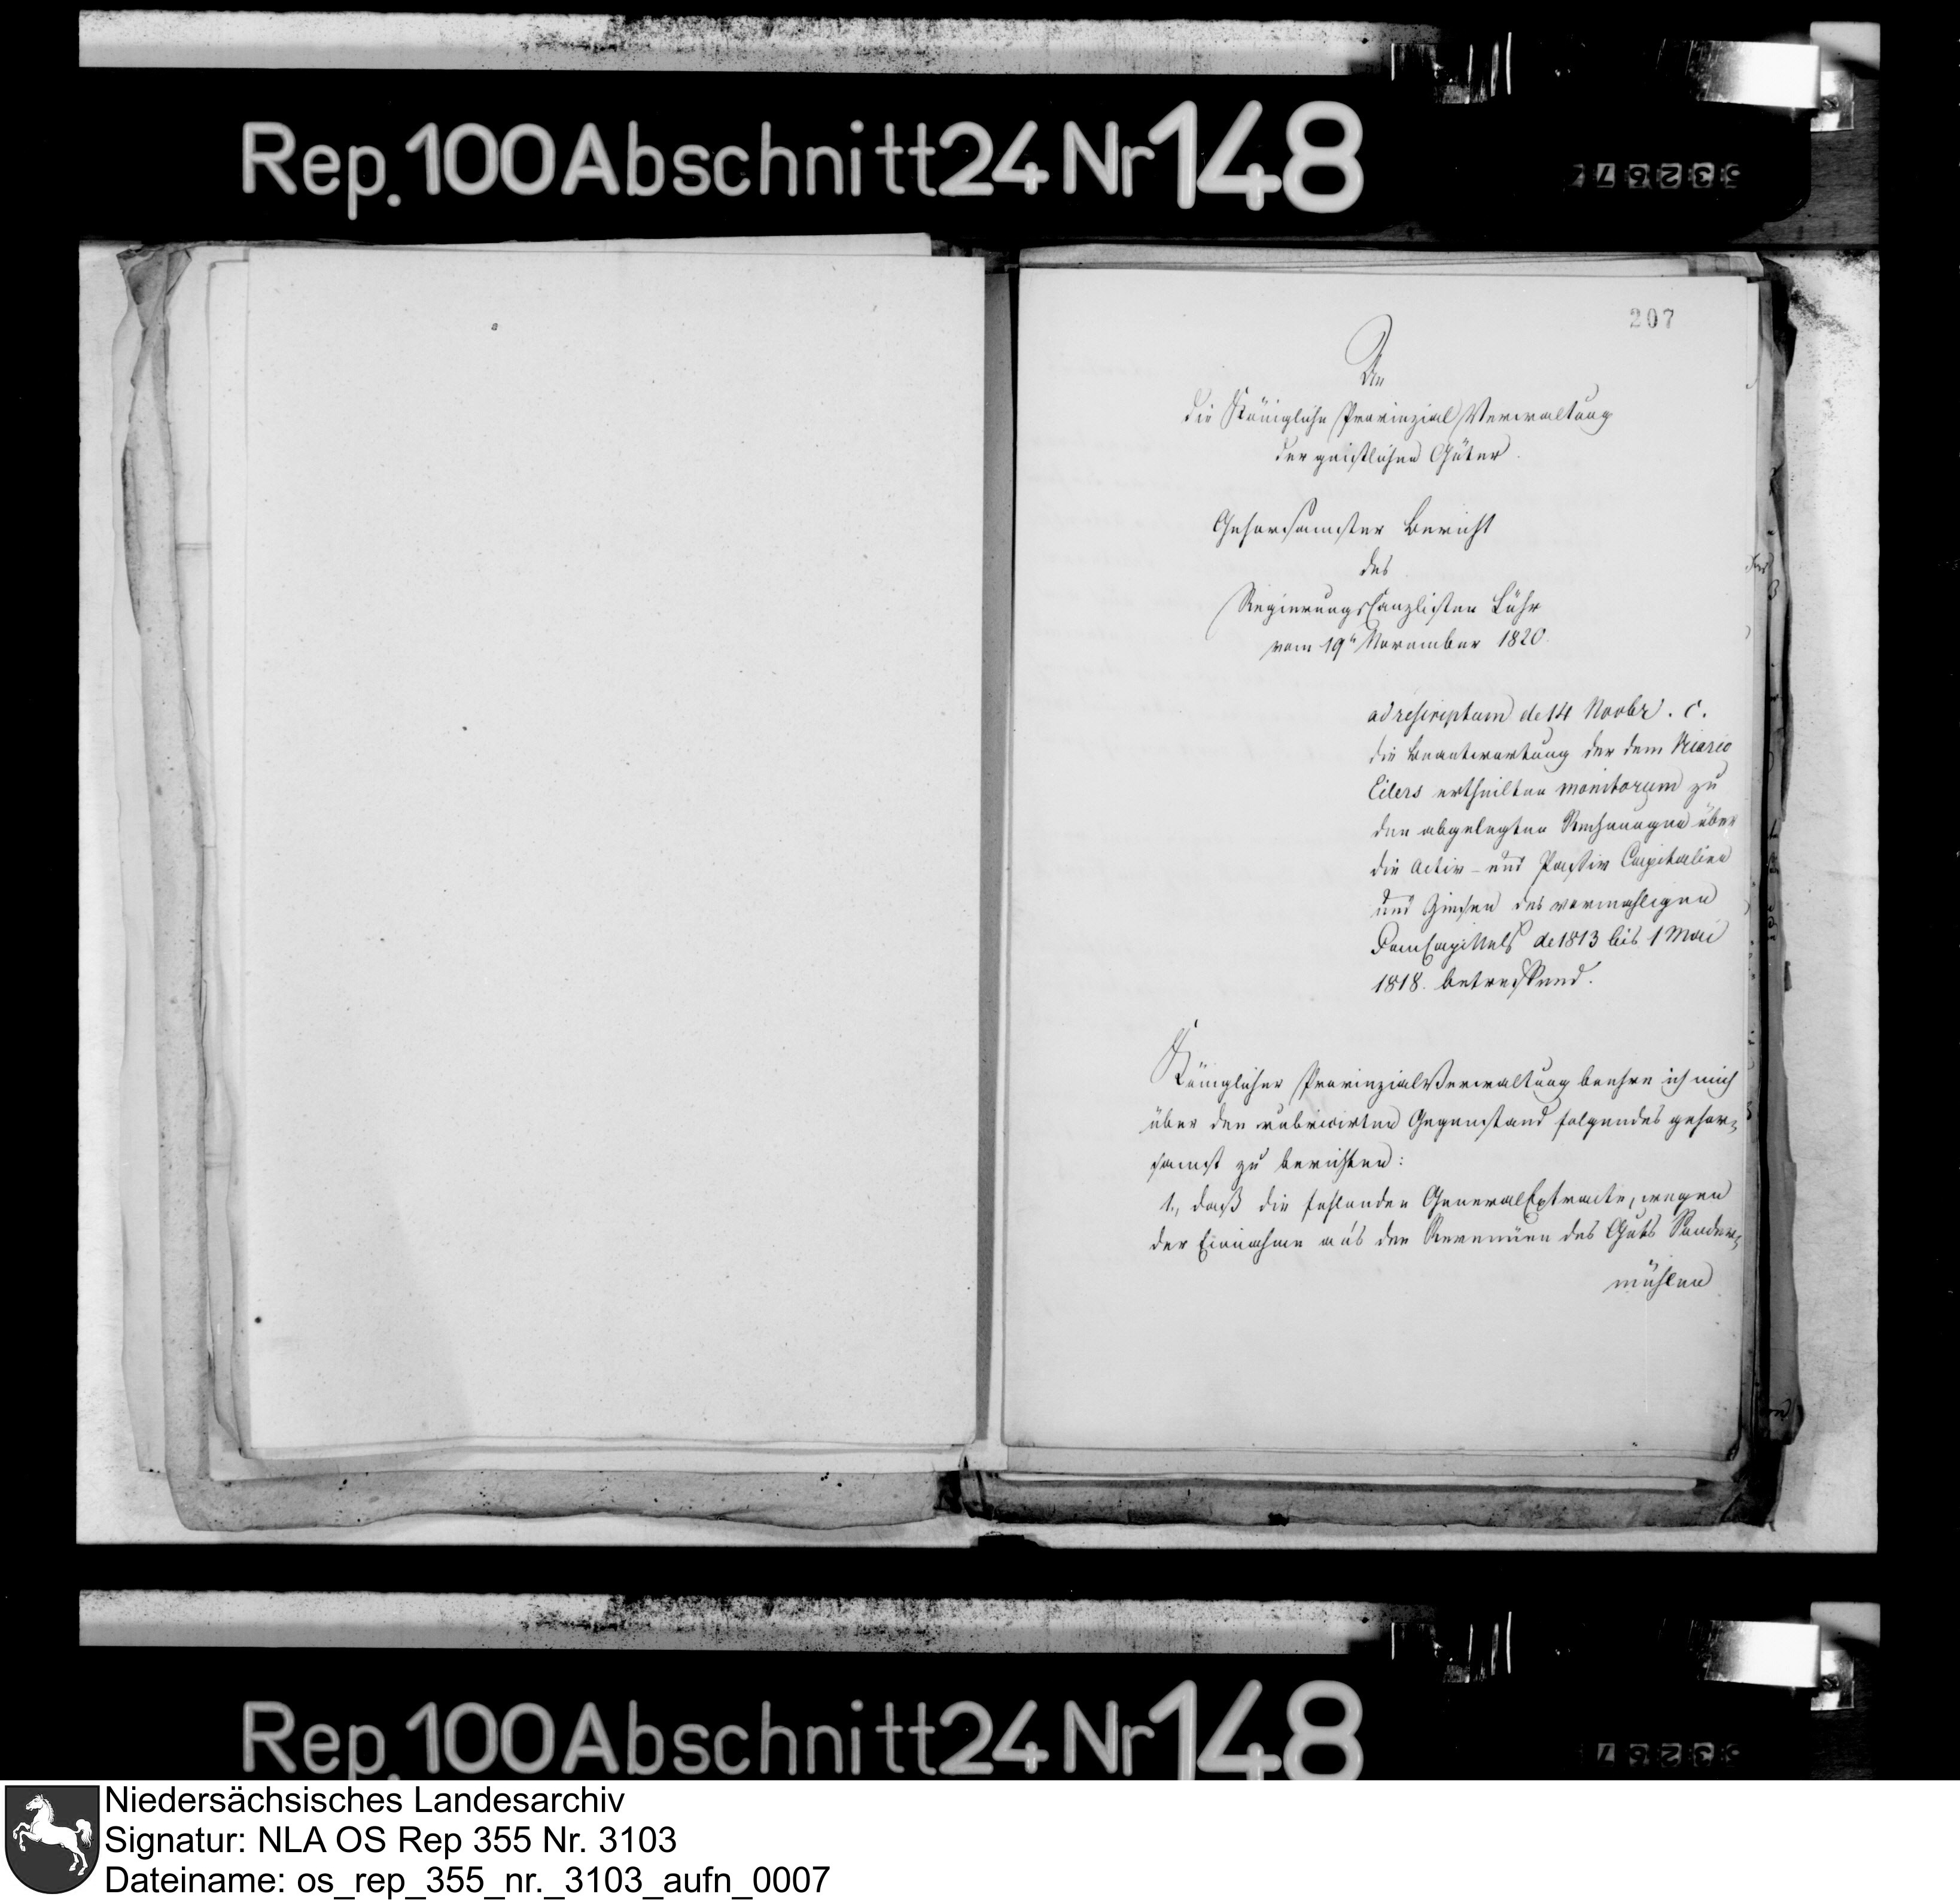 Rep. 100 Abschnitt 24 Nr 148
207
An
die Königliche Provinzial Verwaltung
der geistlichen Güter.
Gehorsamster Bericht
des
Regierungs Canzlisten Lühr
vom 19n November 1820.
ad rescriptum de 14 Novbr. c.
die Beantwortung der dem Vicario
Eilers ertheilten monitorum zu
den abgelegten Rechnungen über
die Activ- und Passiv Capitalien
und Zinsen des vormahligen
DomCapittels de 1813 bis 1 Mai
1818. betreffend.
Königlicher ProvinzialVerwaltung beehre ich mich
über den rubricirten Gegenstand folgendes gehor-
samst zu berichten:
1., daß die fehlenden GeneralExtracte, wegen
der Einnahme aus den Revenüen des Guts Sander-
mühlen
Rep. 100 Abschnitt 24 Nr 148
Niedersächsisches Landesarchiv
Signatur: NLA OS Rep 355 Nr. 3103
Dateiname: os_rep_355_nr._3103_aufn_0007